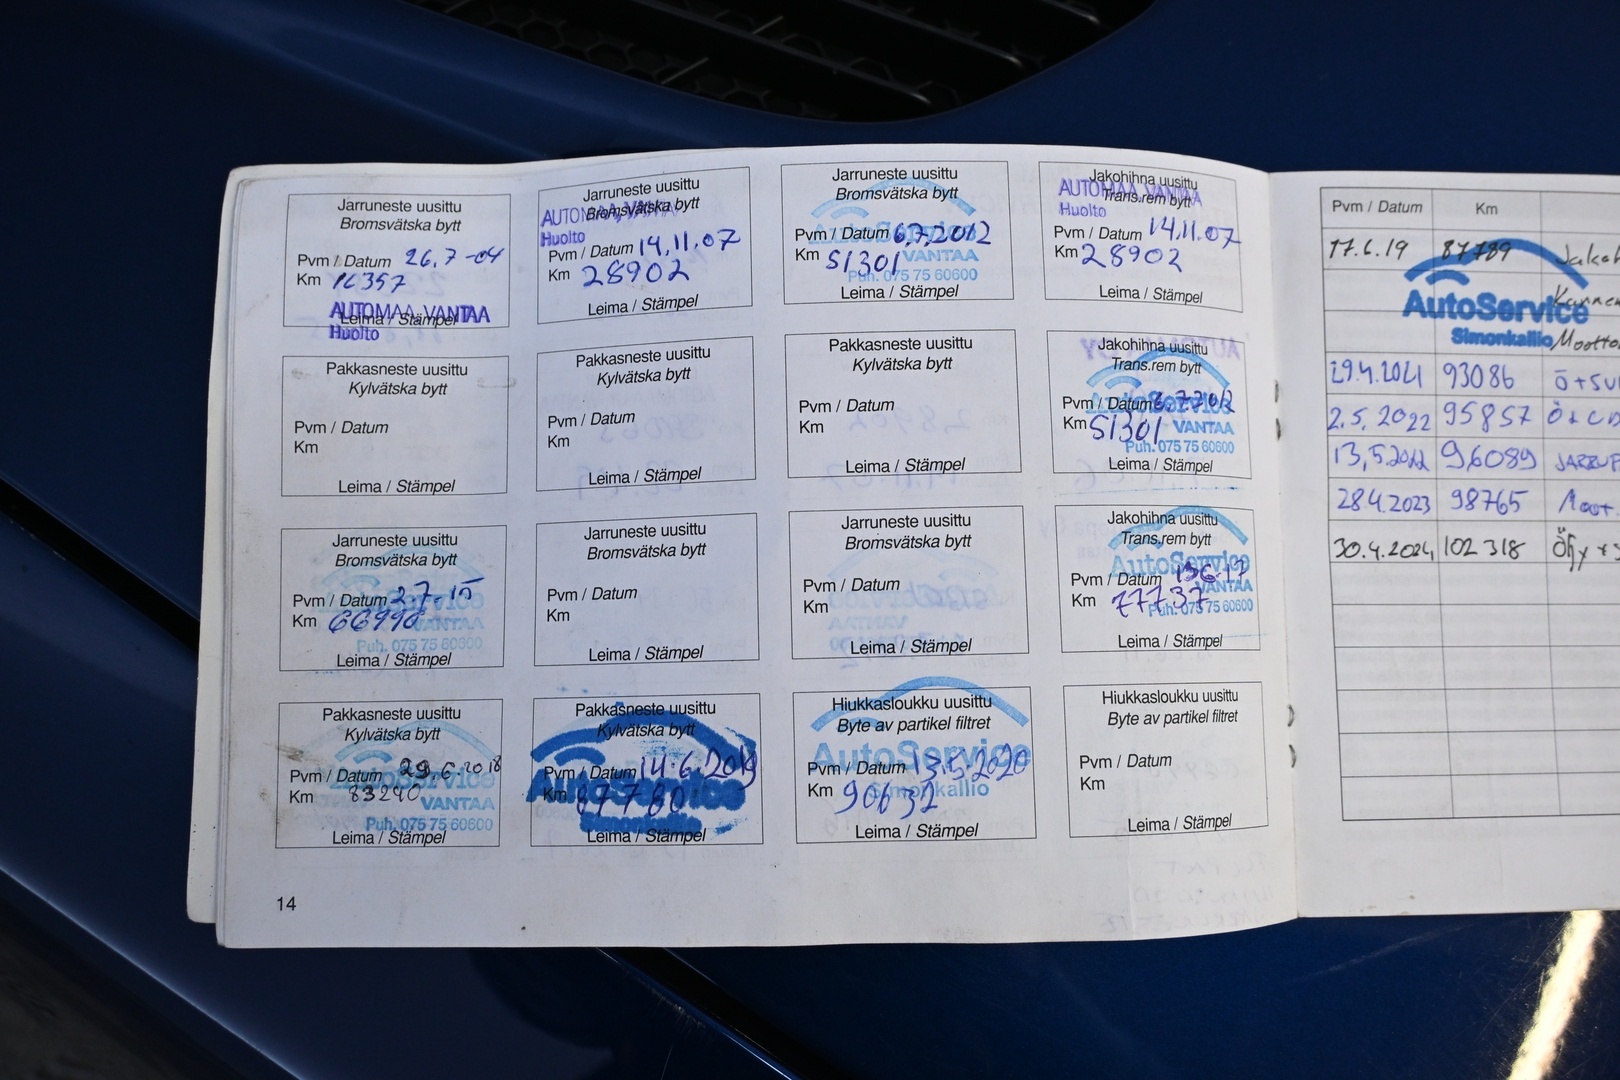 Jarruneste uusittu
Bromsvätska bytt
Pvm / Datum 26.7-04
Km 16357
AUTOMAA, VANTAA
Leima / Stämpel
Huolto
Jarruneste uusittu
AUTOMAA, VANTAA
Bromsvätska bytt
Huolto
Pvm / Datum 14.11.07
Km 28902
Leima / Stämpel
Jarruneste uusittu
Bromsvätska bytt
Pvm / Datum 6.7.2012
Km 51301 VANTAA
Puh. 075 75 60600
Leima / Stämpel
Jakohihna uusittu
AUTOMAA, VANTAA
Trans.rem bytt
Huolto
Pvm / Datum 14.11.07
Km 28902
Leima / Stämpel
Pakkasneste uusittu
Kylvätska bytt
Pvm / Datum
Km
Leima / Stämpel
Pakkasneste uusittu
Kylvätska bytt
Pvm / Datum
Km
Leima / Stämpel
Pakkasneste uusittu
Kylvätska bytt
Pvm / Datum
Km
Leima / Stämpel
Jakohihna uusittu
Trans.rem bytt
AutoService
Pvm / Datum
Km 51301 VANTAA
Puh. 075 75 60600
Leima / Stämpel
Jarruneste uusittu
Bromsvätska bytt
Pvm / Datum 2.7.-15
Km 66990
VANTAA
Puh. 075 75 60600
Leima / Stämpel
Jarruneste uusittu
Bromsvätska bytt
Pvm / Datum
Km
Leima / Stämpel
Jarruneste uusittu
Bromsvätska bytt
Pvm / Datum
Km
Leima / Stämpel
Jakohihna uusittu
Trans.rem bytt
AutoService
Pvm / Datum
Km 77737
VANTAA
Puh. 075 75 60600
Leima / Stämpel
Pakkasneste uusittu
Kylvätska bytt
AutoService
Pvm / Datum 29.6.2018
Km 83240
VANTAA
Puh. 075 75 60600
Leima / Stämpel
Pakkasneste uusittu
Kylvätska bytt
Pvm / Datum 14.6.2019
AutoService
Km 87780
Simonkallio
Leima / Stämpel
Hiukkasloukku uusittu
Byte av partikel filtret
AutoService
Pvm / Datum 13.5.2020
Km 90632
Simonkallio
Leima / Stämpel
Hiukkasloukku uusittu
Byte av partikel filtret
Pvm / Datum
Km
Leima / Stämpel
14
Pvm / Datum Km
17.6.19 87789 Jakoh
AutoService
Simonkallio
29.4.2021 93086
2.5.2022 95857
13.5.2022 96089
28.4.2023 98765 Moot.
30.4.2024 102 318